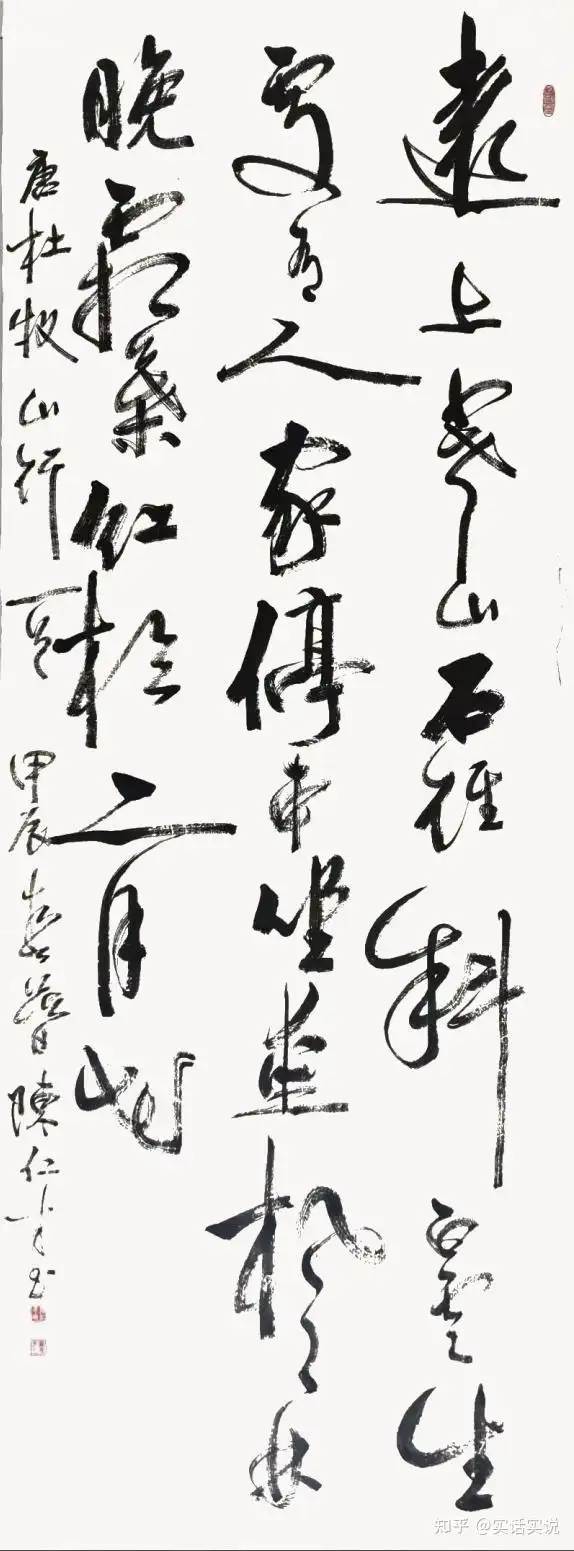 遠上寒山石徑斜白雲生
處有人家停車坐愛楓林
晚霜葉紅於二月花
唐杜牧山行一首 甲辰春暮陳仁書
知乎 @实话实说